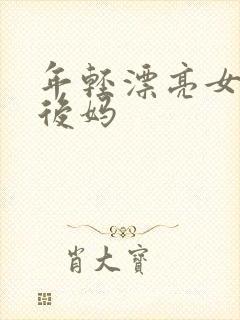 年轻漂亮女
後妈
肖大寶